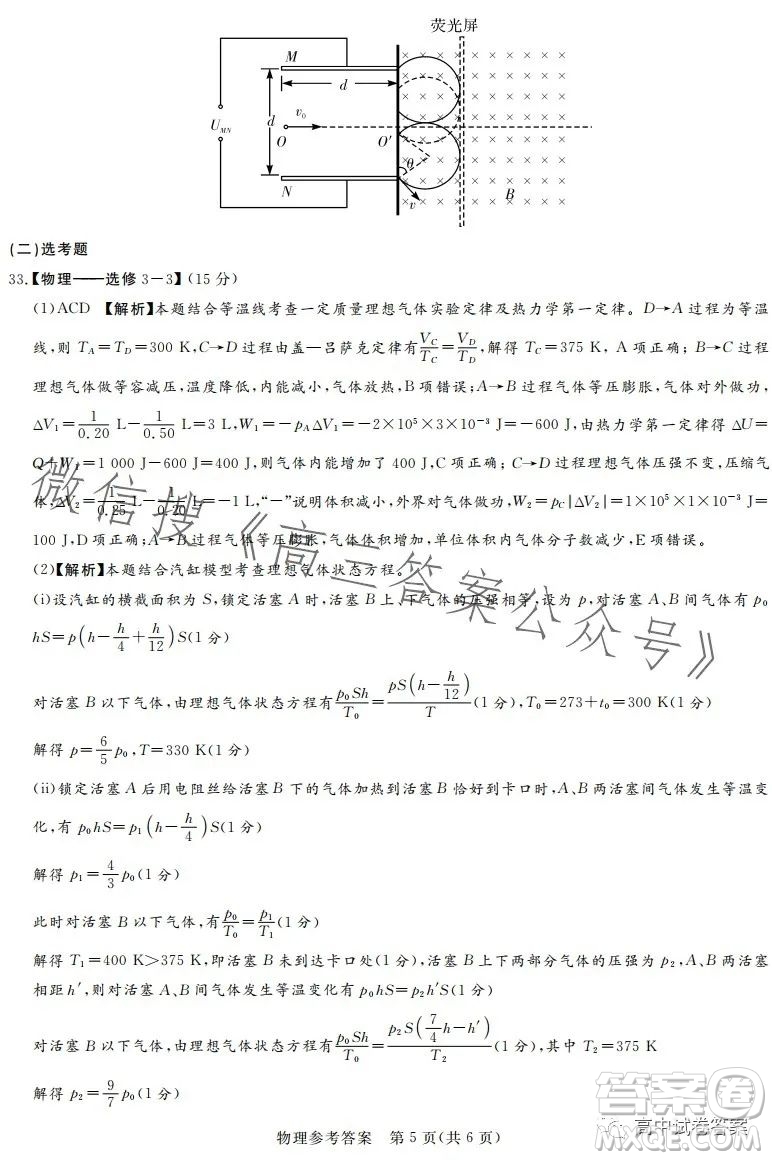 荧光屏
M
d
v₀
U_MN
d
O
O′
θ
N
v
B
(二)选考题
33.【物理——选修3-3】(15分)
(1)ACD 【解析】本题结合等温线考查一定质量理想气体实验定律及热力学第一定律。D→A过程为等温
线,则 T_A=T_D=300 K,C→D过程由盖—吕萨克定律有V_C/T_C=V_D/T_D,解得 T_C=375 K, A项正确;B→C过程
理想气体做等容减压,温度降低,内能减小,气体放热,B项错误;A→B过程气体等压膨胀,气体对外做功,
ΔV₁=1/0.20 L-1/0.50 L=3 L,W₁=-p_AΔV₁=-2×10⁵×3×10⁻³ J=-600 J,由热力学第一定律得 ΔU=
Q+W₁=1 000 J-600 J=400 J,则气体内能增加了 400 J,C项正确;C→D过程理想气体压强不变,压缩气
体,ΔV₂=1/0.25 L-1/0.20 L=-1 L,“-”说明体积减小,外界对气体做功,W₂=p_C|ΔV₂|=1×10⁵×1×10⁻³ J=
100 J,D项正确;A→B过程气体等压膨胀,气体体积增加,单位体积内气体分子数减少,E项错误。
(2)【解析】本题结合汽缸模型考查理想气体状态方程。
(i)设汽缸的横截面积为S,锁定活塞A时,活塞B上、下气体的压强相等,设为p,对活塞A、B间气体有 p₀
hS=p(h-h/4+h/12)S(1分)
对活塞B以下气体,由理想气体状态方程有p₀Sh/T₀=pS(h-h/12)/T(1分),T₀=273+t₀=300 K(1分)
解得 p=6/5 p₀,T=330 K(1分)
(ii)锁定活塞A后用电阻丝给活塞B下的气体加热到活塞B恰好到卡口时,A、B两活塞间气体发生等温变
化,有 p₀hS=p₁(h-h/4)S(1分)
解得 p₁=4/3 p₀(1分)
此时对活塞B以下气体,有p₀/T₀=p₁/T₁(1分)
解得 T₁=400 K>375 K,即活塞B未到达卡口处(1分),活塞B上下两部分气体的压强为 p₂,A、B两活塞
相距h′,则对活塞A、B间气体发生等温变化有 p₀hS=p₂h′S(1分)
对活塞B以下气体,由理想气体状态方程有p₀Sh/T₀=p₂S(7/4 h-h′)/T₂(1分),其中 T₂=375 K
解得 p₂=9/7 p₀(1分)
物理参考答案 第5页(共6页)
微信搜《高三答案公众号》
高中试卷答案
答案圈
MXQE.COM